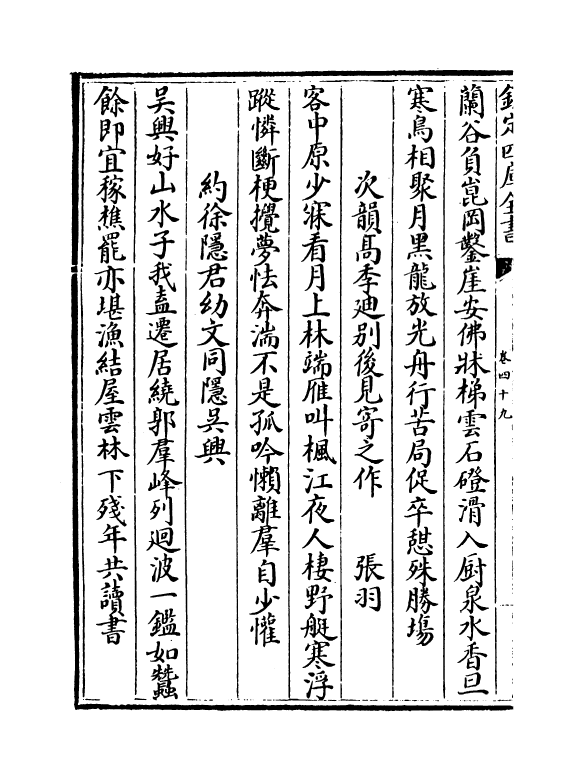 欽定四庫全書
卷四十九
蘭谷負崑岡鑿崖安佛牀梯雲石磴滑入厨泉水香旦
寒鳥相聚月黑龍放光舟行苦局促卒憇殊勝塲
次韻高季廸别後見寄之作　張羽
客中原少寐看月上林端雁呌楓江夜人棲野艇寒浮
蹤憐斷梗攪夢怯奔湍不是孤吟懶離羣自少懽
約徐隱君幼文同隱吳興
吳興好山水子我盍遷居繞郭羣峰列迴波一鑑如蠶
餘即宜稼樵罷亦堪漁結屋雲林下殘年共讀書